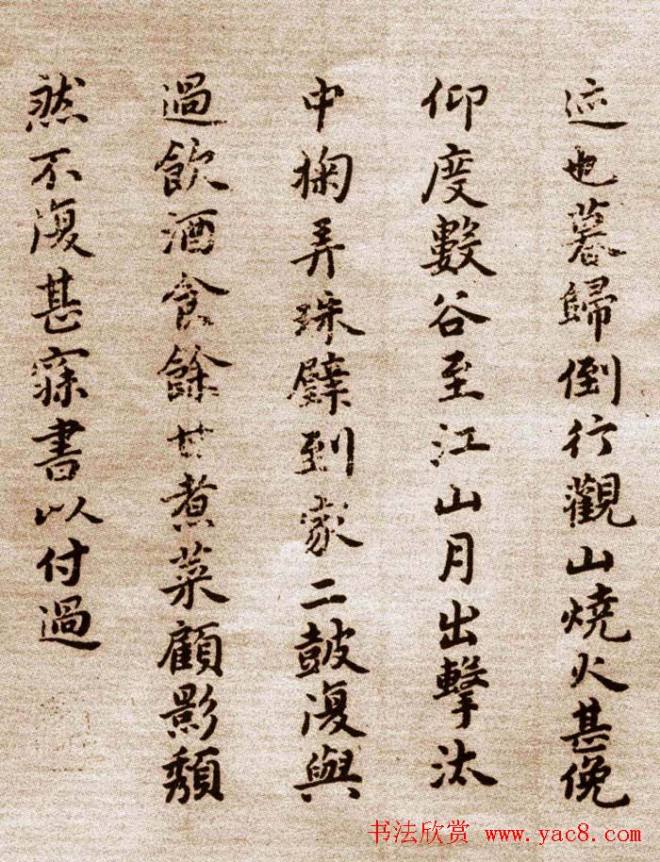 迹也暮歸倒行觀山燒火甚俛
仰度數谷至江山月出擊汰
中掬弄珠璧到家二鼓復與
過飲酒食餘甘煮菜顧影頹
然不復甚寐書以付過
书法欣赏 www.yac8.com